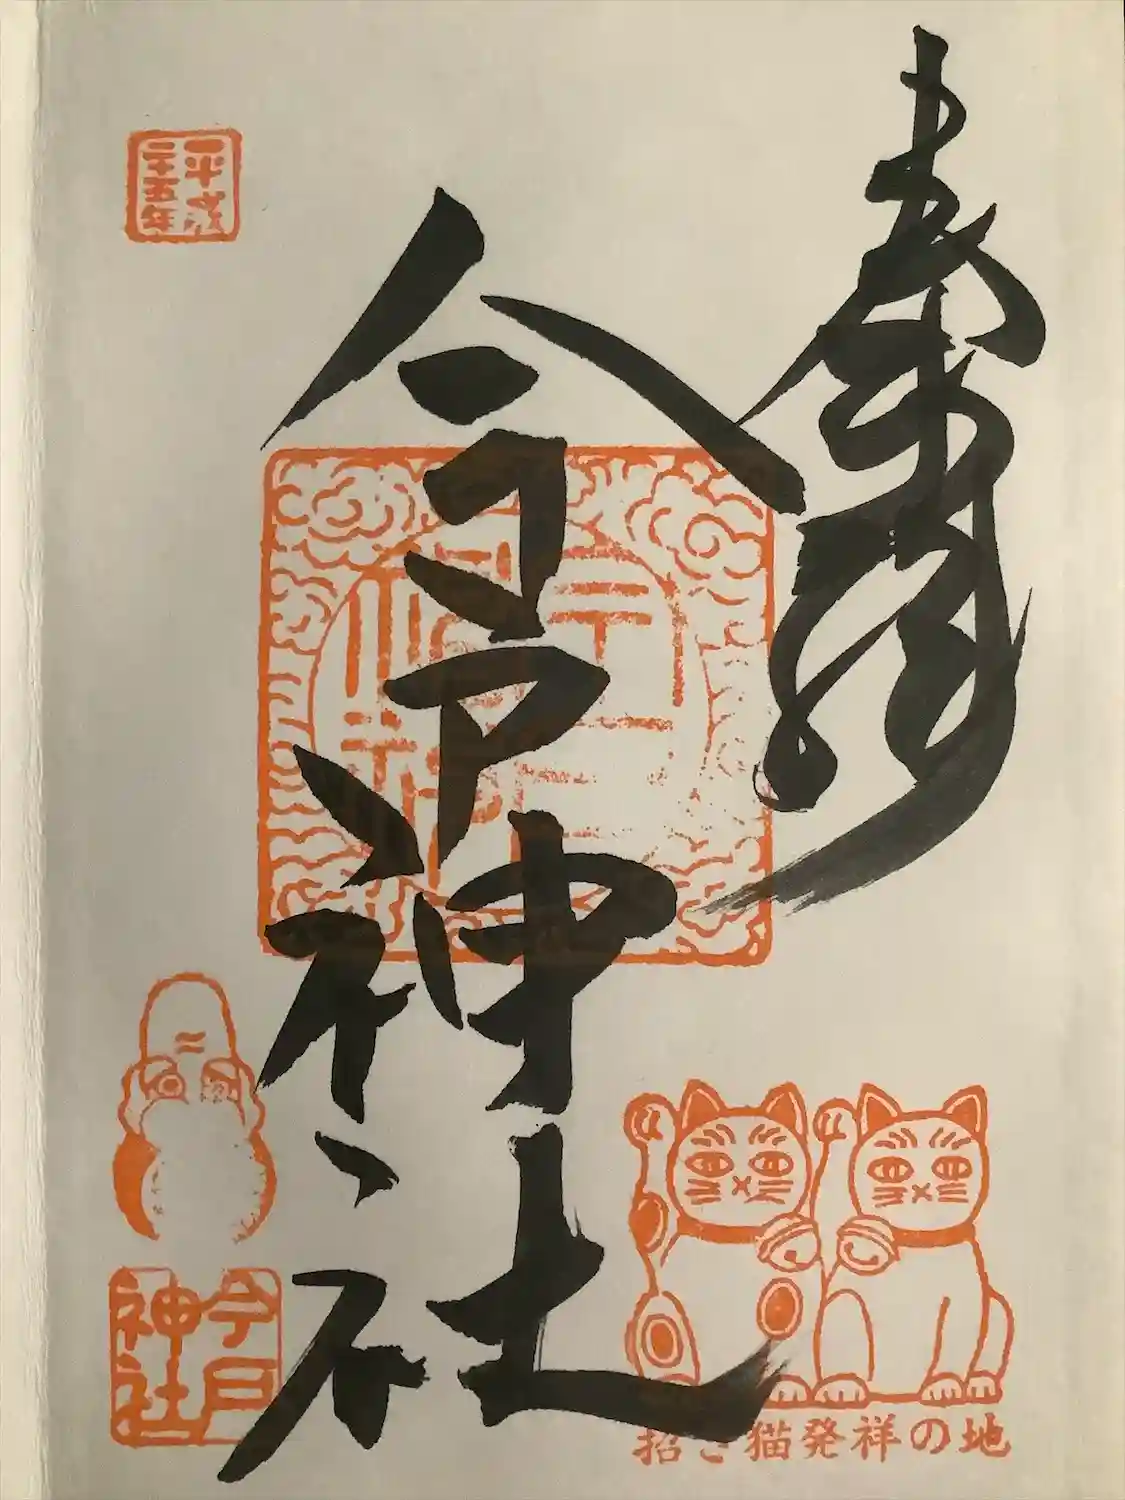 奉拝
今戸神社
平成
二十五年
今戸
神社
招き猫発祥の地